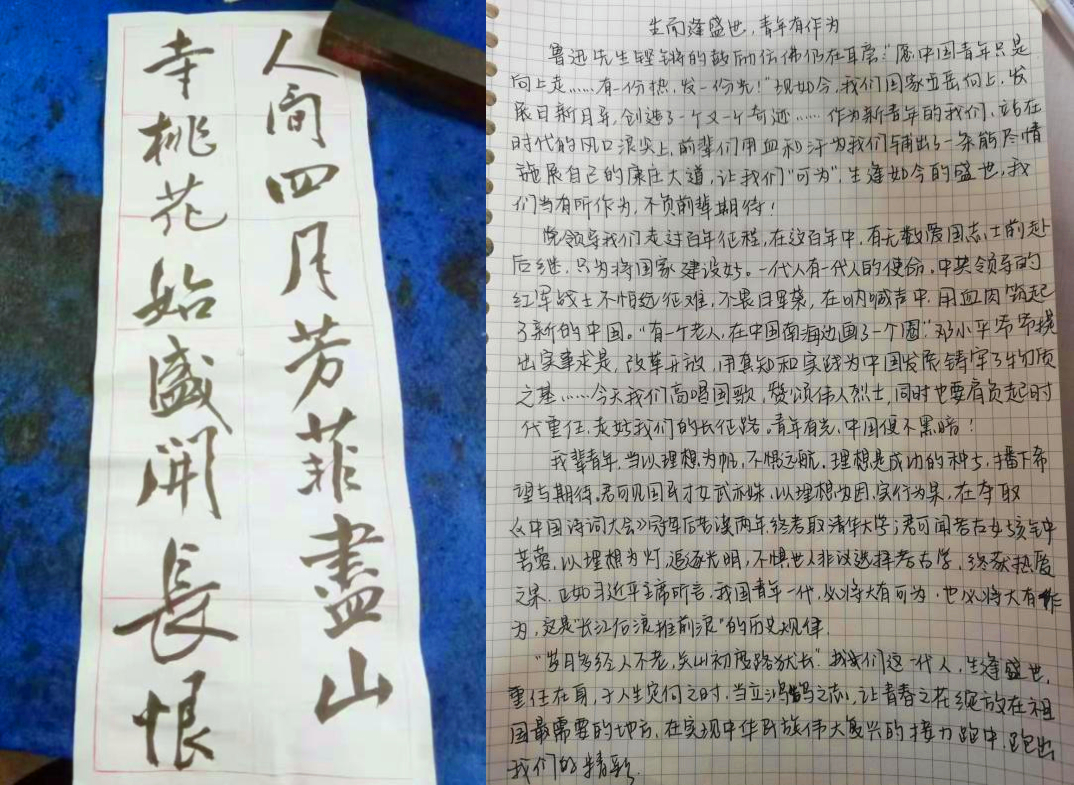 人間四月芳菲盡山
寺桃花始盛開長恨
生而逢盛世，青年有作为
鲁迅先生铿锵的鼓励仿佛仍在耳旁："愿中国青年只是
向上走……有一份热，发一份光！"现如今，我们国家蒸蒸向上，发
展日新月异，创造了一个又一个奇迹……作为新青年的我们，站在
时代的风口浪尖上，前辈们用血和汗为我们铺出了一条能尽情
施展自己的康庄大道，让我们"可为"，生逢如今的盛世，我
们当有所作为，不负前辈期待！
党领导我们走过百年征程，在这百年中，有无数爱国志士前赴
后继，只为将国家建设好。一代人有一代人的使命，中共领导的
红军战士不怕远征难，不畏日军袭，在呐喊声中，用血肉筑起
了新的中国。"有一个老人，在中国南海边画了一个圈"，邓小平爷爷提
出实事求是，改革开放，用真知和实践为中国发展铸牢了物质
之基……今天我们高唱国歌，赞颂伟人烈士，同时也要肩负起时
代重任，走好我们的长征路。青年有光，中国便不黑暗！
我辈青年，当以理想为帆，不惧远航。理想是成功的种子，播下希
望与期待。君可见国民才女武亦姝，以理想为因，实行为果，在夺取
《中国诗词大会》冠军后苦读两年，终考取清华大学；君可闻考古女孩钟
芳蓉，以理想为灯，追逐光明，不惧世人非议选择考古学，终获热爱
之果。正如习近平主席所言，我国青年一代，必将大有可为，也必将大有作
为，这是"长江后浪推前浪"的历史规律。
"岁月多经人不老，关山初度路犹长"，我们这一代人，生逢盛世，
重任在身，于人生定向之时，当立鸿鹄之志，让青春之花绽放在祖
国最需要的地方，在实现中华民族伟大复兴的接力跑中，跑出
我们的精彩。